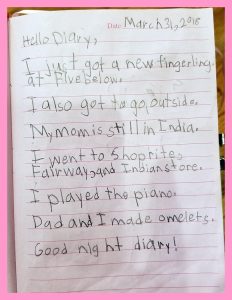 Date: March 31, 2018
Hello Diary,
I just got a new fingerling.
at Five below.
I also got to go outside.
My mom is still in India.
I went to Shoprite,
Fairway, and Indian store.
I played the piano.
Dad and I made omelets.
Good night diary!